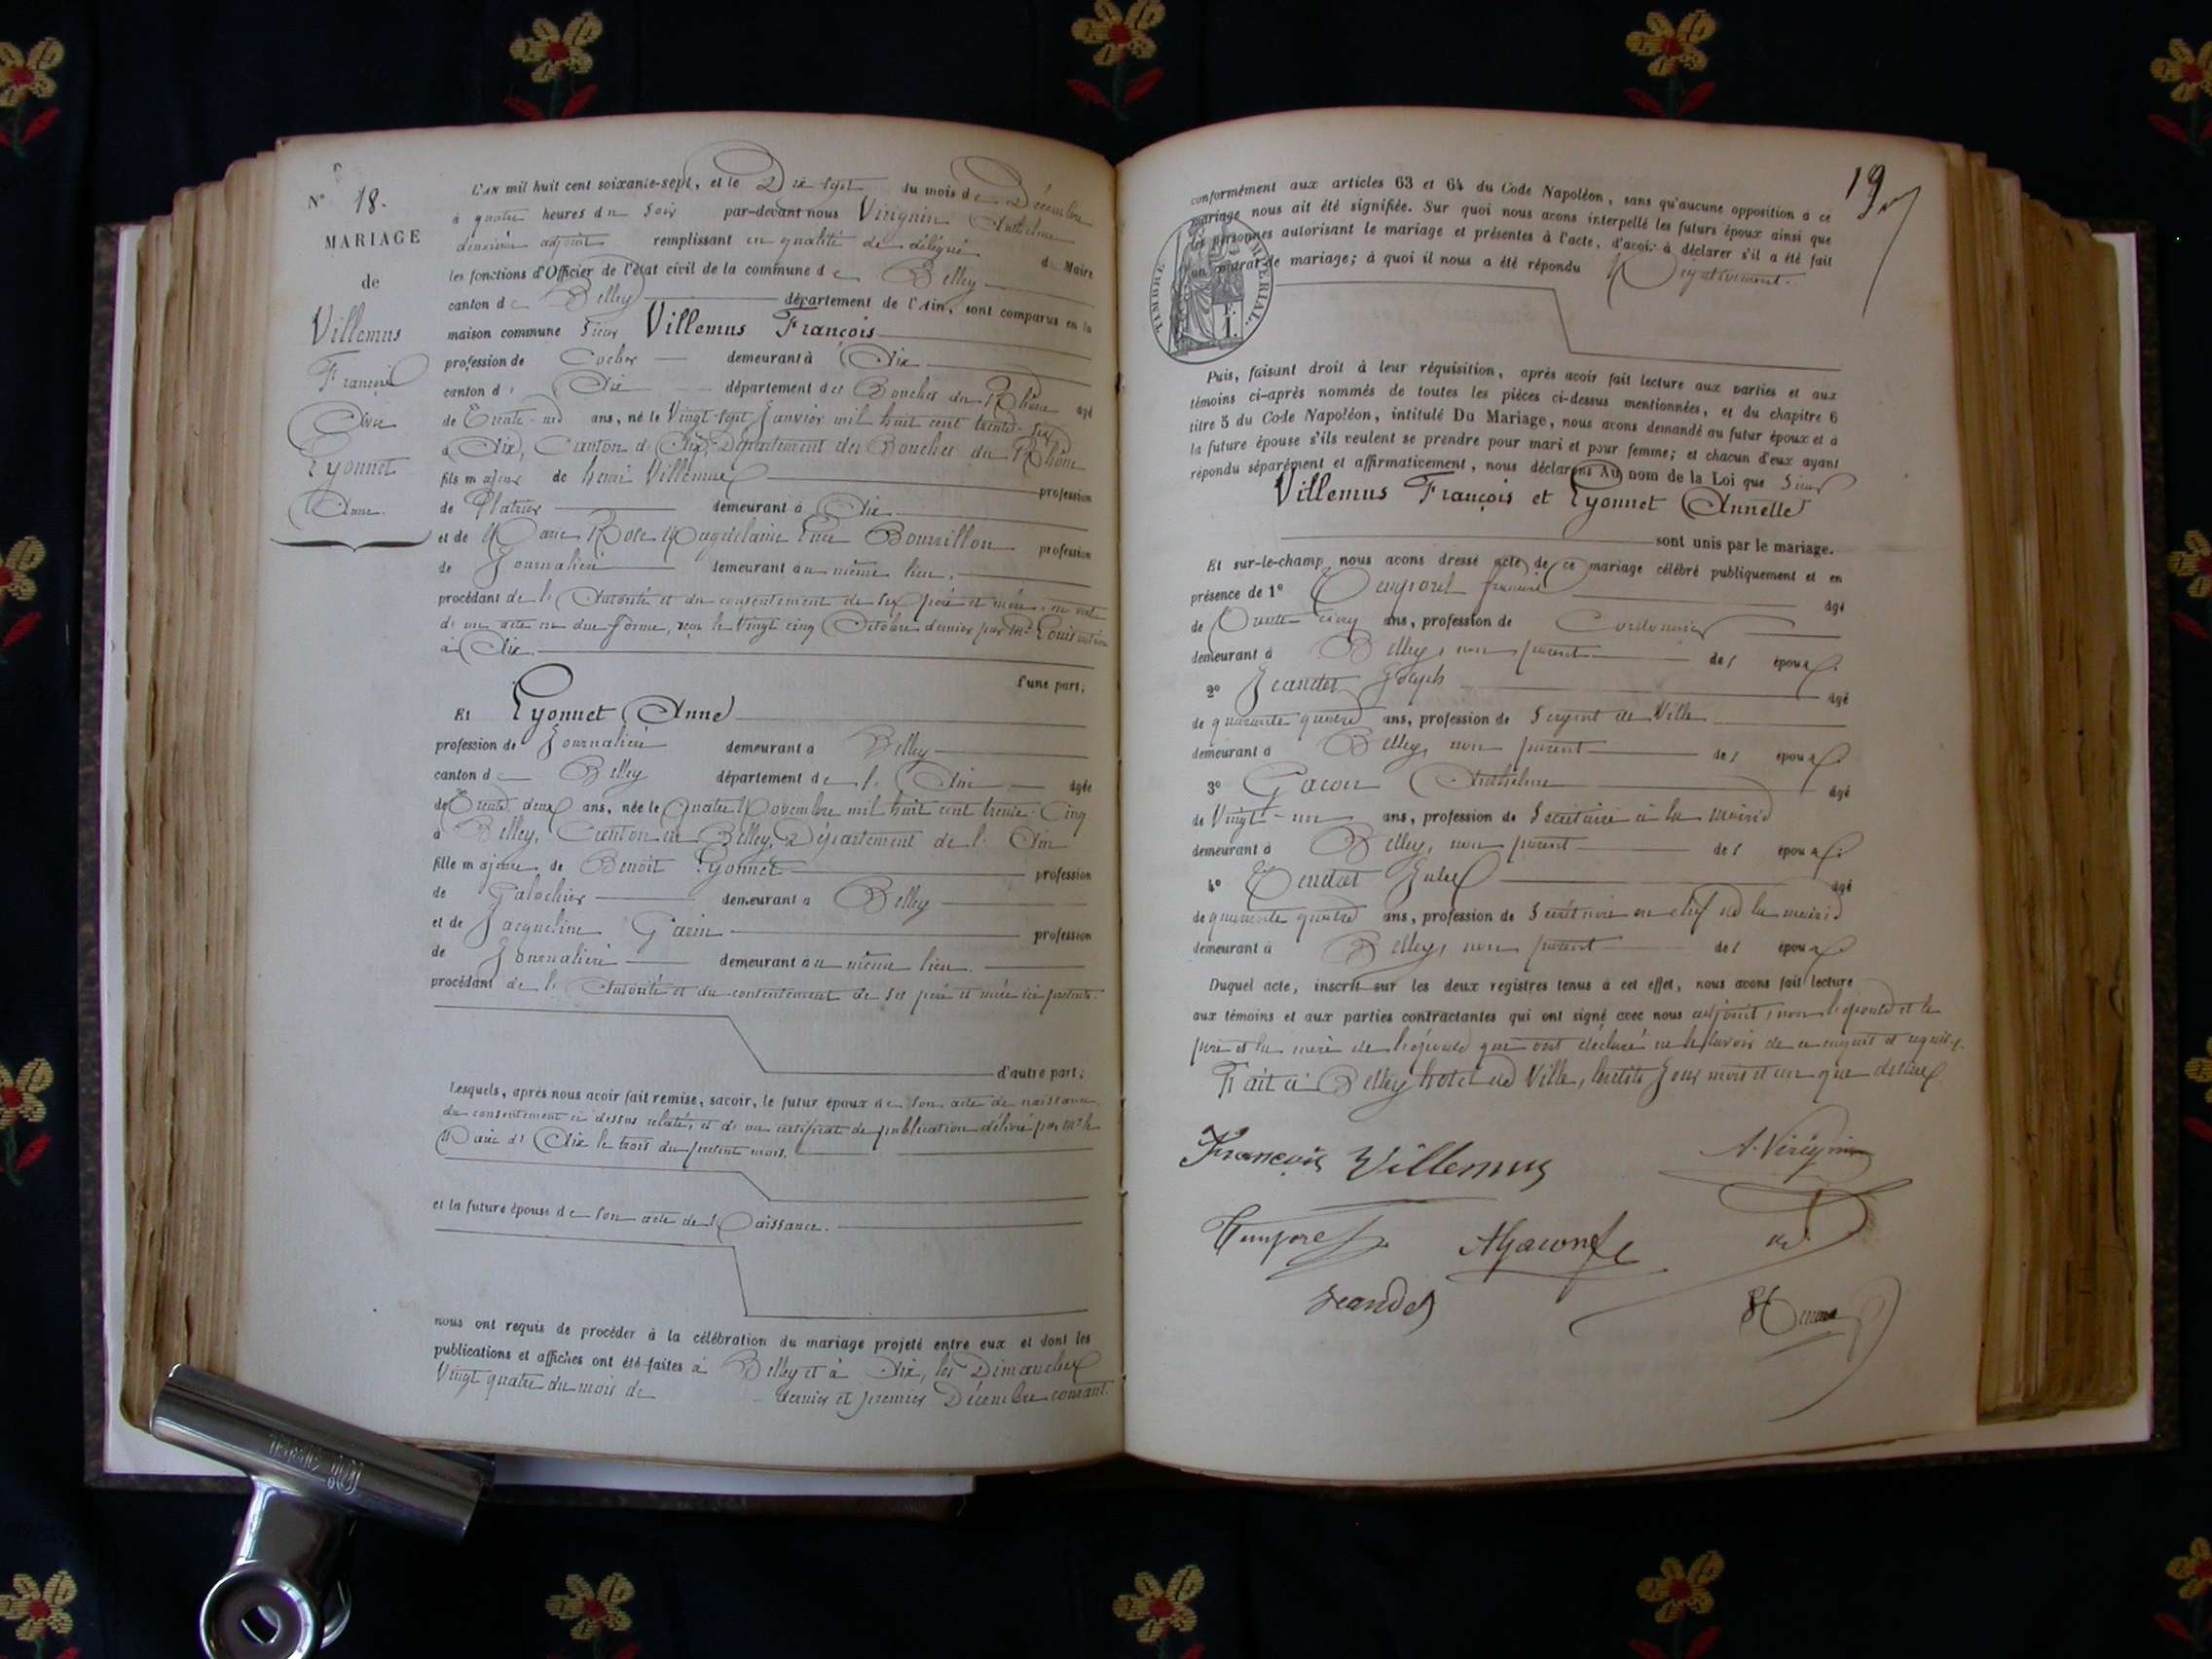 N° 18.
MARIAGE
de
Villemus
François
Avec
Lyonnet
Anne.
L'AN mil huit cent soixante-sept, et le Dix sept du mois de Décembre
à quatre heures du Soir par-devant nous Virignin Anthelme
deuxième adjoint remplissant en qualité de délégué du Maire
les fonctions d'Officier de l'état civil de la commune de Belley
canton de Belley département de l'Ain, sont comparus en la
maison commune Sieur Villemus François
profession de Cocher demeurant à Aix
canton d' Aix département des Bouches du Rhône agé
de Trente-un ans, né le Vingt-sept Janvier mil huit cent trente-six
à Aix, Canton d'Aix, Département des Bouches du Rhône
fils majeur de henri Villemus profession
de Platrier demeurant à Aix
et de Marie Rose Magdelaine Bourrillon profession
de Journalière demeurant au même lieu.
procédant de l'Autorité et du consentement de ses père et mère, en vertu
de un acte en due forme, reçu le Vingt cinq Octobre dernier par Me Louis notaire
à Aix
d'une part;
Et Lyonnet Anne
profession de Journalière demeurant à Belley
canton de Belley département de l'Ain agée
de Trente deux ans, née le Quatre Novembre mil huit cent trente-Cinq
à Belley, Canton de Belley, Département de l'Ain
fille majeure de Benoît Lyonnet profession
de Galochier demeurant à Belley
et de Jacqueline Garin profession
de Journalière demeurant au même lieu.
procédant de l'Autorité et du consentement de ses père et mère ici présents.
d'autre part;
Lesquels, après nous avoir fait remise, savoir, le futur époux de son acte de naissance,
du consentement ci dessus relaté, et de un certificat de publication délivré par Mr le
Maire d'Aix le trois du présent mois.
et la future épouse de son acte de Naissance.
nous ont requis de procéder à la célébration du mariage projeté entre eux et dont les
publications et affiches ont été faites à Belley et à Aix, les Dimanches
Vingt quatre du mois de dernier et premier Décembre courant.
19
conformément aux articles 63 et 64 du Code Napoléon, sans qu'aucune opposition à ce
mariage nous ait été signifiée. Sur quoi nous avons interpellé les futurs époux ainsi que
les personnes autorisant le mariage et présentes à l'acte, d'avoir à déclarer s'il a été fait
un contrat de mariage; à quoi il nous a été répondu Négativement.
TIMBRE IMPÉRIAL.
F.
1.
Puis, faisant droit à leur réquisition, après avoir fait lecture aux parties et aux
témoins ci-après nommés de toutes les pièces ci-dessus mentionnées, et du chapitre 6
titre 5 du Code Napoléon, intitulé Du Mariage, nous avons demandé au futur époux et à
la future épouse s'ils veulent se prendre pour mari et pour femme; et chacun d'eux ayant
répondu séparément et affirmativement, nous déclarons Au nom de la Loi que Sieur
Villemus François et Lyonnet Annette
sont unis par le mariage.
Et sur-le-champ nous avons dressé acte de ce mariage célébré publiquement et en
présence de 1° Temporel François agé
de Trente-cinq ans, profession de Cordonnier
demeurant à Belley, non parent des époux.
2° Jeandet Joseph agé
de quarante quatre ans, profession de Sergent de Ville
demeurant à Belley, non parent des époux.
3° Gacon Anthelme agé
de Vingt-un ans, profession de Secrétaire à la mairie
demeurant à Belley, non parent des époux.
4° Tendat Jules agé
de quarante quatre ans, profession de Secrétaire en chef de la mairie
demeurant à Belley, non parent des époux
Duquel acte, inscrit sur les deux registres tenus à cet effet, nous avons fait lecture
aux témoins et aux parties contractantes qui ont signé avec nous adjoint, non l'épouse et le
père et la mère de l'épouse qui ont déclaré ne le savoir de ce enquis et requis.
Fait à Belley hotel de Ville, lesdits jour mois et an que dessus.
François Villemus
A. Virignin
Temporel
AGacon
Jeandet